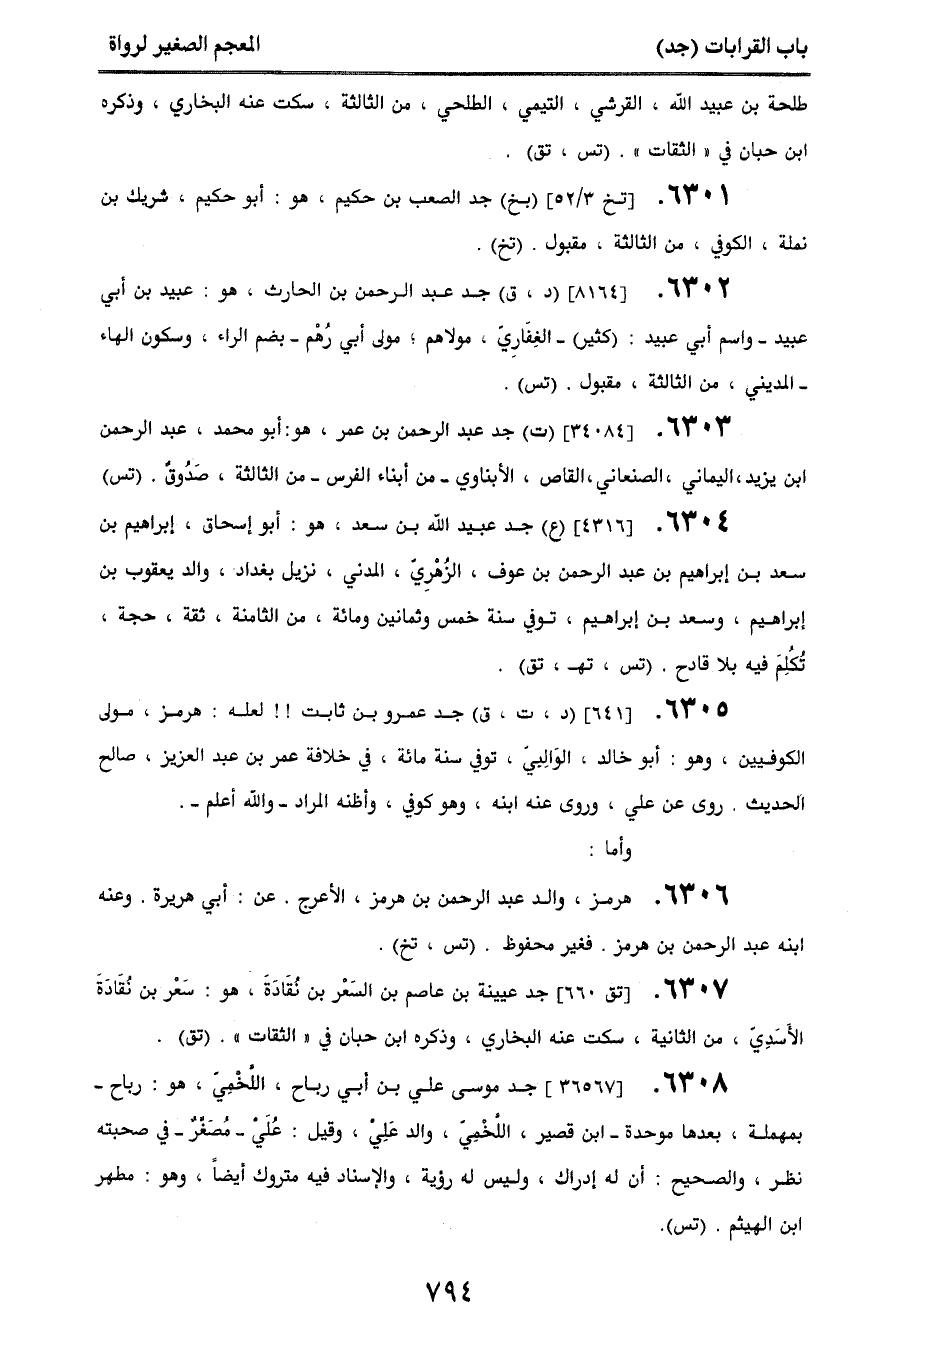 باب القرابات (جد) المعجم الصغير لرواة
طلحة بن عبيد الله ، القرشي ، التيمي ، الطلحي ، من الثالثة ، سكت عنه البخاري ، وذكره
ابن حبان في « الثقات » . (تس ، تق) .
٦٣٠١. [تخ ٥٢/٣] (بخ) جد الصعب بن حكيم ، هو : أبو حكيم ، شريك بن
نملة ، الكوفي ، من الثالثة ، مقبول . (تخ) .
٦٣٠٢. [٨١٦٤] (د ، ق) جد عبد الرحمن بن الحارث ، هو : عبيد بن أبي
عبيد ــ واسم أبي عبيد : (كثير) ــ الغِفَارِيّ ، مولاهم ؛ مولى أبي رُهْم ــ بضم الراء ، وسكون الهاء
ــ المديني ، من الثالثة ، مقبول . (تس) .
٦٣٠٣. [٣٤٠٨٤] (ت) جد عبد الرحمن بن عمر ، هو: أبو محمد ، عبد الرحمن
ابن يزيد، اليماني ،الصنعاني،القاص ، الأبناوي ــ من أبناء الفرس ــ من الثالثة ، صَدُوقٌ . (تس)
٦٣٠٤. [٤٣١٦] (ع) جد عبيد الله بن سعد ، هو : أبو إسحاق ، إبراهيم بن
سعد بن إبراهيم بن عبد الرحمن بن عوف ، الزُهْرِيّ ، المدني ، نزيل بغداد ، والد يعقوب بن
إبراهيم ، وسعد بن إبراهيم ، توفي سنة خمس وثمانين ومائة ، من الثامنة ، ثقة ، حجة ،
تُكُلِمَ فيه بلا قادح . (تس ، تهـ ، تق) .
٦٣٠٥. [٦٤١] (د ، ت ، ق) جد عمرو بن ثابت !! لعله : هرمز ، مولى
الكوفيين ، وهو : أبو خالد ، الوَالِبيّ ، توفي سنة مائة ، في خلافة عمر بن عبد العزيز ، صالح
الحديث . روى عن علي ، وروى عنه ابنه ، وهو كوفي ، وأظنه المراد ــ والله أعلم ــ .
وأما :
٦٣٠٦. هرمز ، والد عبد الرحمن بن هرمز ، الأعرج . عن : أبي هريرة . وعنه
ابنه عبد الرحمن بن هرمز . فغير محفوظ . (تس ، تخ) .
٦٣٠٧. [تق ٦٦٠] جد عيينة بن عاصم بن السَعْر بن نُقَادَةَ ، هو : سَعْر بن نُقَادَةَ
الأَسَدِيّ ، من الثانية ، سكت عنه البخاري ، وذكره ابن حبان في « الثقات » . (تق) .
٦٣٠٨. [٣٦٥٦٧ ] جد موسى علي بن أبي رباح ، اللُّخْمِيّ ، هو : رباح ــ
بمهملة ، بعدها موحدة ــ ابن قصير ، اللُّخْمِيّ ، والد عَلِيْ ، وقيل : عُلَيْ ــ مُصَغَّرٌ ــ في صحبته
نظر ، والصحيح : أن له إدراك ، وليس له رؤية ، والإسناد فيه متروك أيضاً ، وهو : مطهر
ابن الهيثم . (تس).
٧٩٤